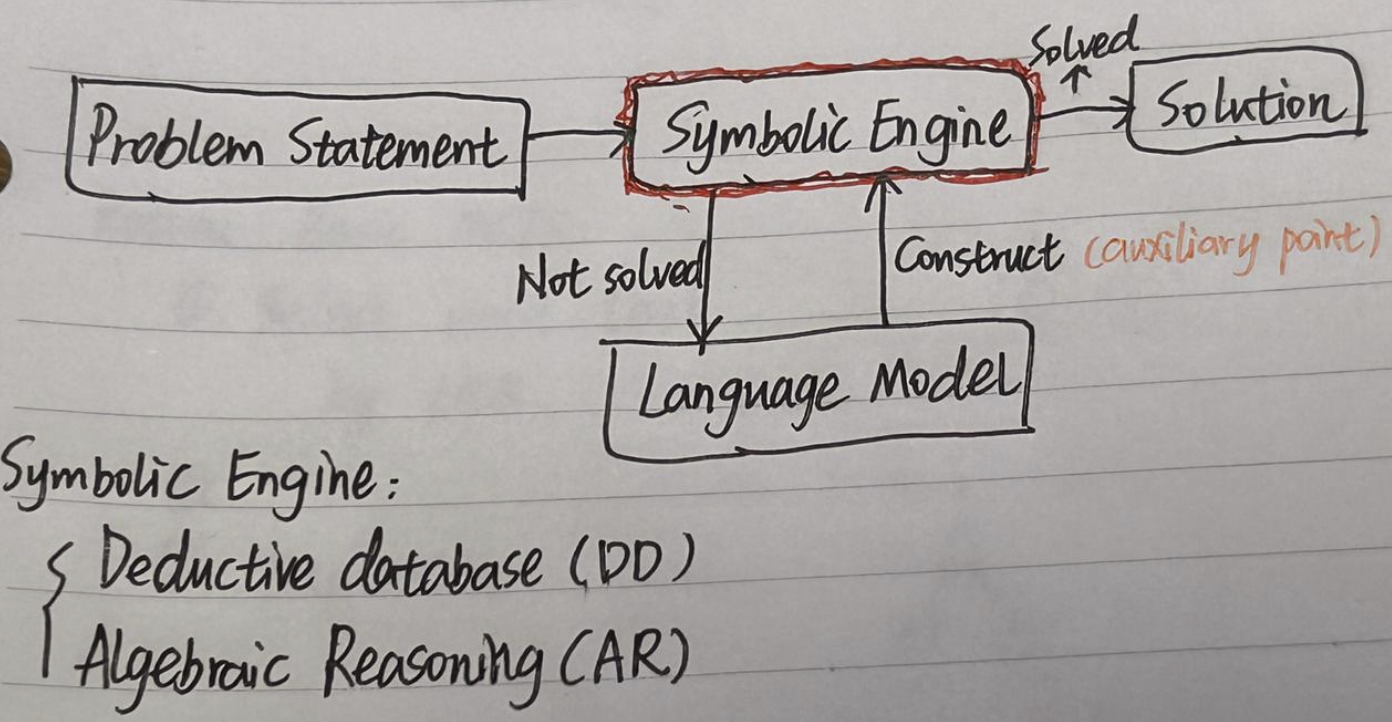 Solved
Problem Statement
Symbolic Engine
Solution
Not solved
Construct (auxiliary point)
Language Model
Symbolic Engine:
Deductive database (DD)
Algebraic Reasoning (AR)